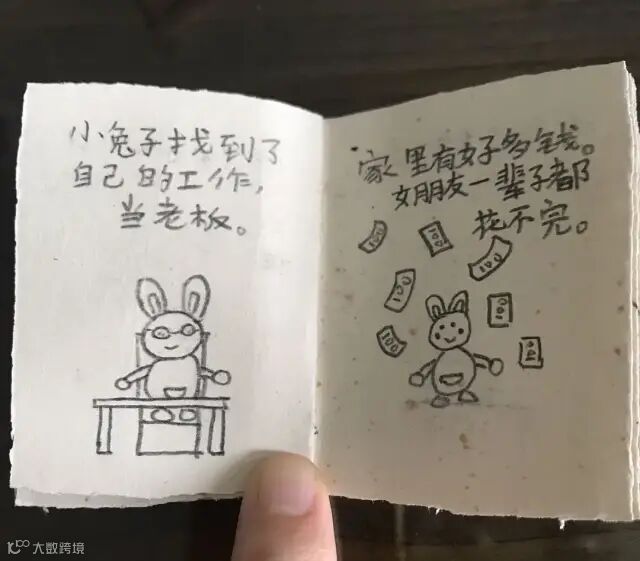 小兔子找到了
自己的工作，
当老板。
家里有好多钱。
女朋友一辈子都
花不完。
100
100
100
100
100
100
100
大数跨境